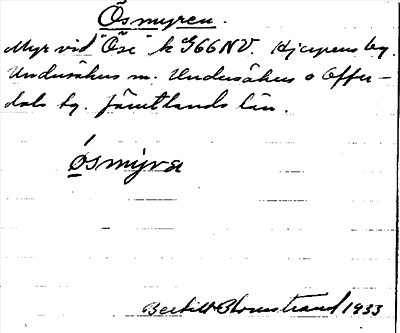 Ösmyren.
Myr vid Öse k G66NV. Hjerpens by.
Undersåkers m. Undersåkers o Offer-
dals tg. Jämtlands län.
ósmýra
Bertil Blomstrand 1933